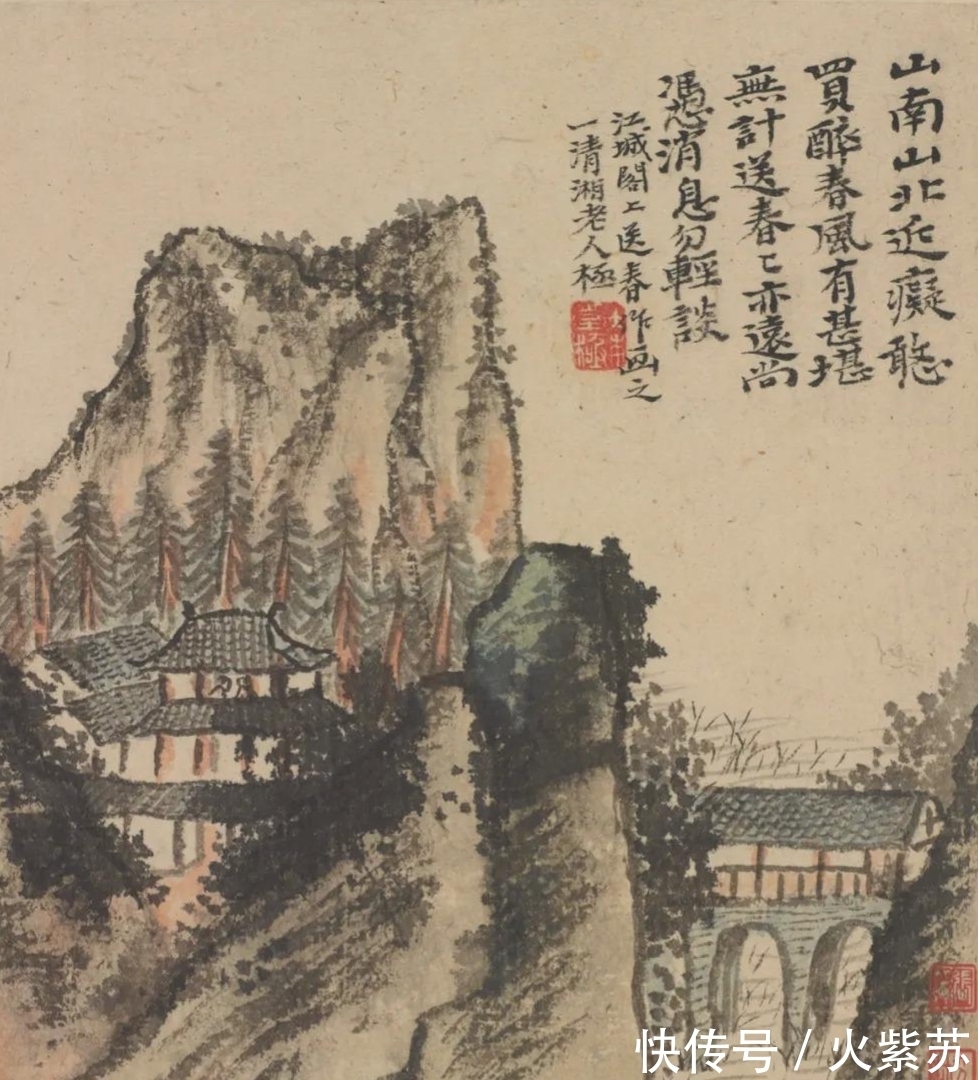 山南山北近癡憨
買醉春風有甚堪
無計送春〻亦遠尚
憑消息勿輕談
江城閣上送春作画之
一清湘老人極
快传号 / 火紫苏